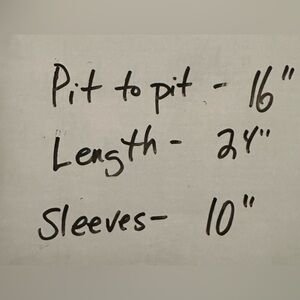 Pit to pit - 16"
Length - 24"
Sleeves- 10"